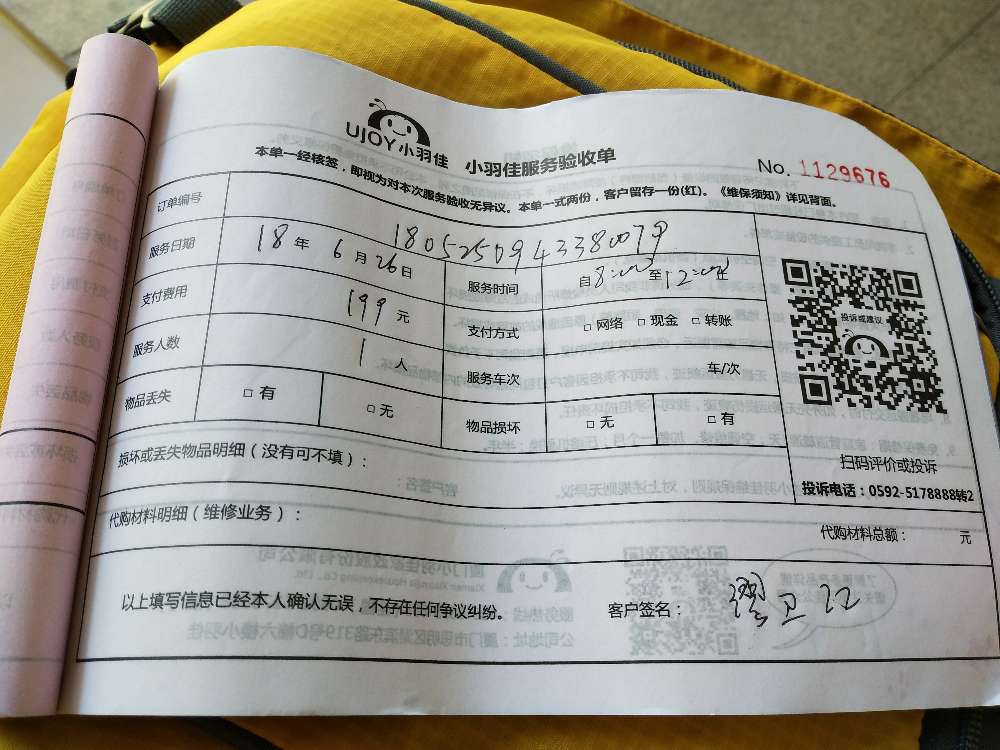 UJOY小羽佳 小羽佳服务验收单
No. 1129676
本单一经核签，即视为对本次服务验收无异议。本单一式两份，客户留存一份(红)。《维保须知》详见背面。
订单编号 1805250943380079
服务日期 18 年 6 月 26 日 服务时间 自 8:00 至 12:00 止
支付费用 199 元 支付方式 □ 网络 □ 现金 □ 转账
服务人数 1 人 服务车次 车/次
物品丢失 □ 有 □ 无 物品损坏 □ 无 □ 有
投诉或建议
扫码评价或投诉
投诉电话：0592-5178888转2
损坏或丢失物品明细（没有可不填）：
代购材料明细（维修业务）：
代购材料总额： 元
以上填写信息已经本人确认无误，不存在任何争议纠纷。 客户签名：